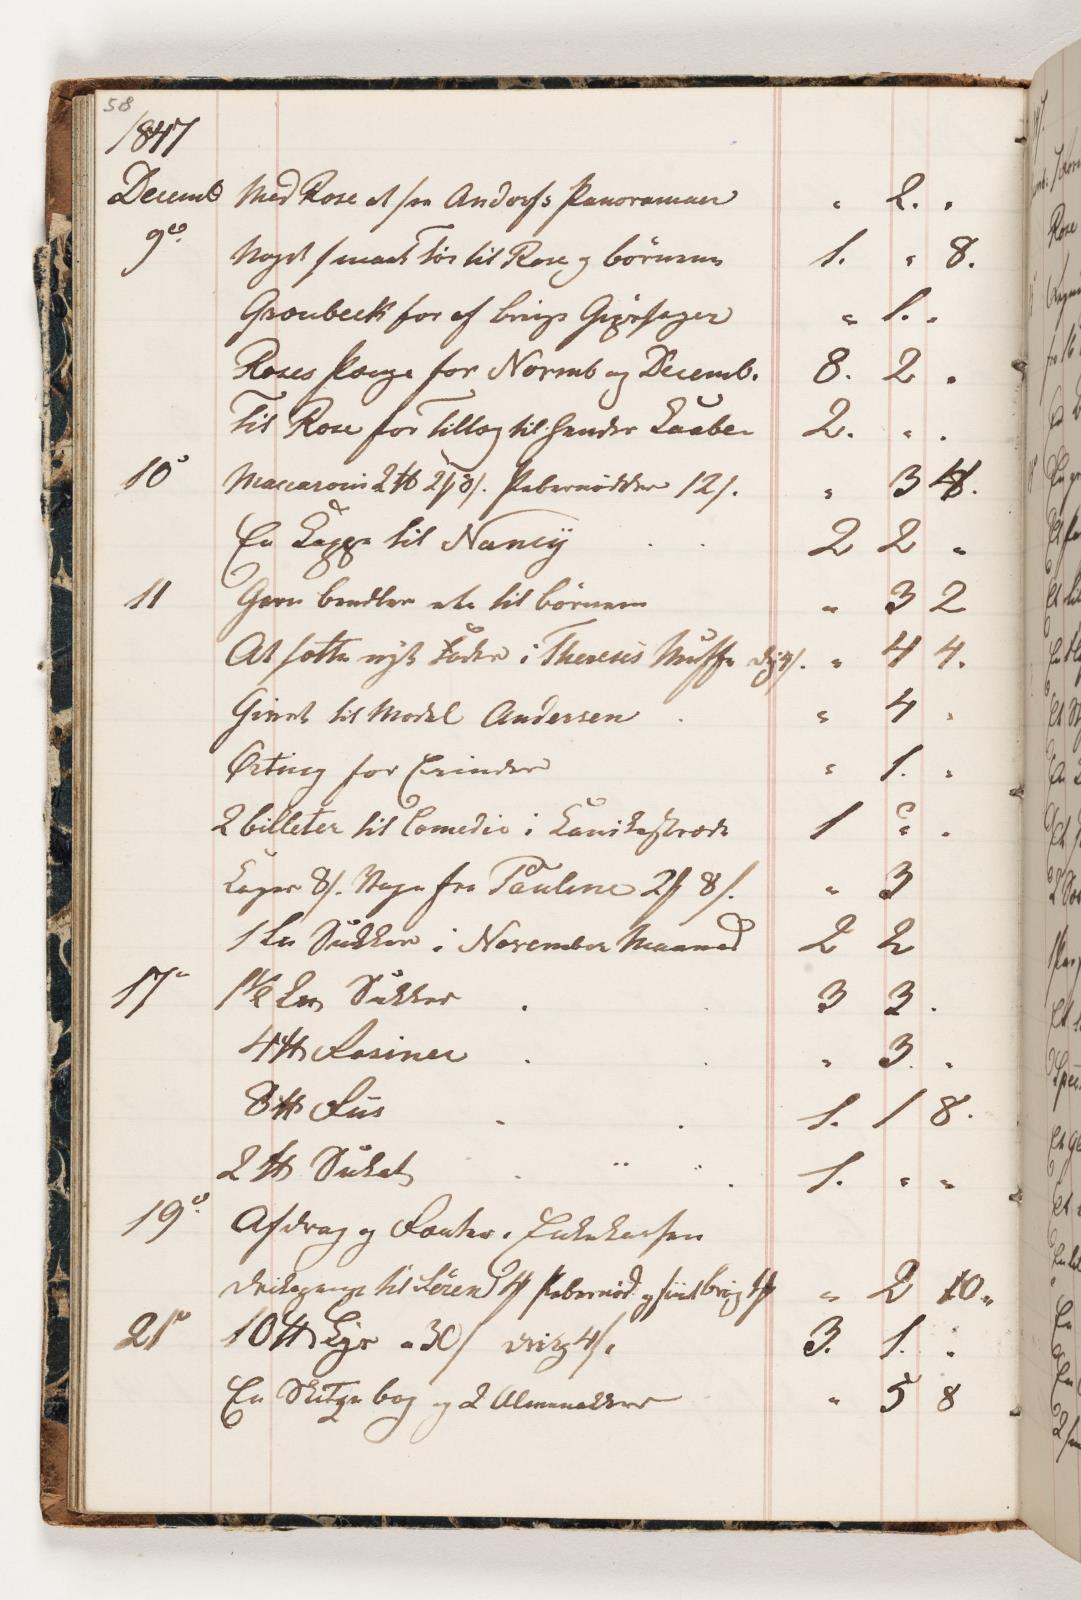 58
1847
Decemb Med Rose at see Andorfs Panoramaer " 2. "
9de. Noget smaat Tøi til Rose og børnene 1. " 8.
Grønbeck for af bringe Gipssager " 1. "
Roses Penge for Novemb og Decemb. 8. 2 "
Til Rose for Tillæg til hendes Kaabe 2. " .
10de Maccaroni 2 ℔ 2 ꝑ 8 /. Pebernødder 12 /. " 3 4.
En Kappe til Nancÿ . . 2 2 "
11 Garn bendler etc til børnene " 3 2
At sætte nyt Foder i Thereses Muffe 4/. " 4 4.
Givet til Model Andersen . " 4 "
Ørting for Erinder " 1. "
2 billeter til Comedie i Kannikestræde 1 " .
Kager 8 /. Vogn fra Pauline 2 ꝑ 8 /. " 3
1 Lu Sukker i November Maaned 2 2
17de 1½ Lu Sukker . 3 3 .
4 ℔ Rosiner . . " 3. "
8 ℔ Riis . . 1. 1 8.
2 ℔ Sukat . . 1. " "
19de. Afdrag og Renter i Enkekassen
drikepenge til Søren Pebernød og " 2 10 "
21de 10 ℔ Lys a 30 / 4 /. 3. 1. "
En Skitze bog og 2 Almanakker " 5 8